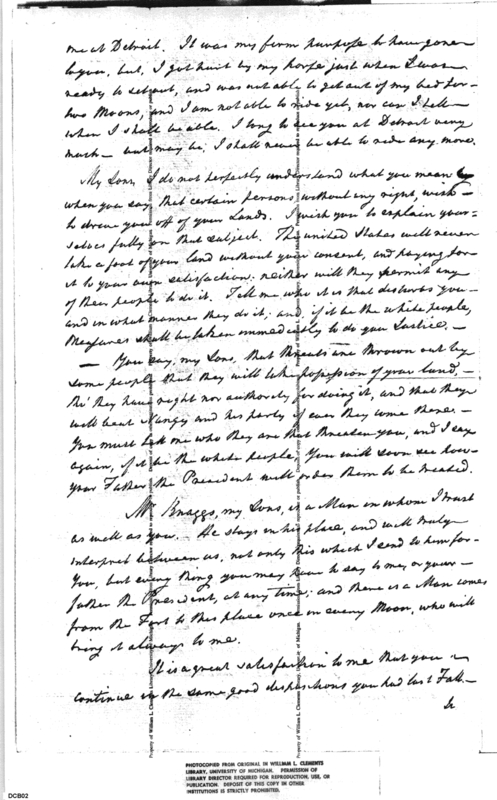 me at Detroit. It was my firm purpose to have gone
to you, but, I got hurt by my horse just when I was
ready to set out, and was not able to get out of my bed for
two Moons, and I am not able to ride yet, nor can I tell
when I shall be able. I long to see you at Detroit very
much — but may be, I shall never be able to ride any more.
My Sons, I do not perfectly understand what you mean by
when you say, that certain persons without any right, wish
to drive you off of your Lands. I wish you to explain your-
selves fully on that subject. The united States will never
take a foot of your land without your consent, and paying for
it to your own satisfaction. neither will they permit any
of their people to do it. Tell me who it is that disturbs you
and in what manner they do it; and, if it be the white people,
Measures shall be taken immediately to do you Justice. —
— You say, my Sons, that threats are thrown out by
some people that they will take possession of your land, —
tho' they have no right nor authority for doing it, and that they
will beat and his party if ever they come there. —
You must tell me who they are that threaten you, and I say
again, if it be the white people, You will soon see how
your Father the President will order them to be treated.
Mr. Knaggs, my Sons, is a Man in whom I trust
as well as you. He stays in his place, and will truly
interpret between us, not only this which I send to him for
You, but every thing you may have to say to me, or your
father the President, at any time; and there is a Man comes
from the Fort to this place once in every Moon, who will
bring it always to me.
It is a great satisfaction to me that you
continue in the same good dispositions you had last Fall —
Property of William L. Clements Library, University of Michigan.
PHOTOCOPIED FROM ORIGINAL IN WILLIAM L. CLEMENTS
LIBRARY, UNIVERSITY OF MICHIGAN. PERMISSION OF
LIBRARY DIRECTOR REQUIRED FOR REPRODUCTION, USE, OR
PUBLICATION. DEPOSIT OF THIS COPY IN OTHER
INSTITUTIONS IS STRICTLY PROHIBITED.
DCB02